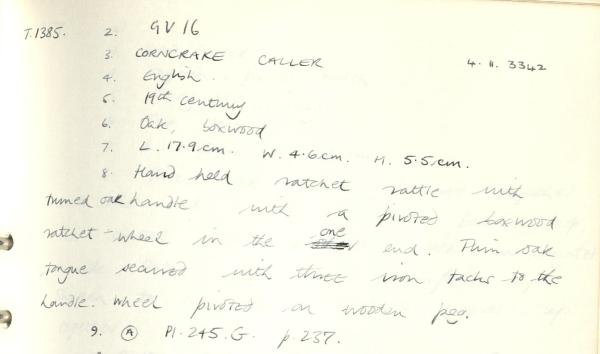 T.1385. 2. GV 16
3. CORNCRAKE CALLER 4.11.3342
4. English.
5. 19th century
6. Oak, boxwood
7. L. 17.9.cm. W. 4.6.cm. H. 5.5.cm.
8. Hand held ratchet rattle with
turned oak handle with a pivoted boxwood
ratchet-wheel in the one end. Thin oak
tongue secured with three iron tacks to the
handle. Wheel pivoted on wooden peg.
9. A Pl. 245. G. p. 237.